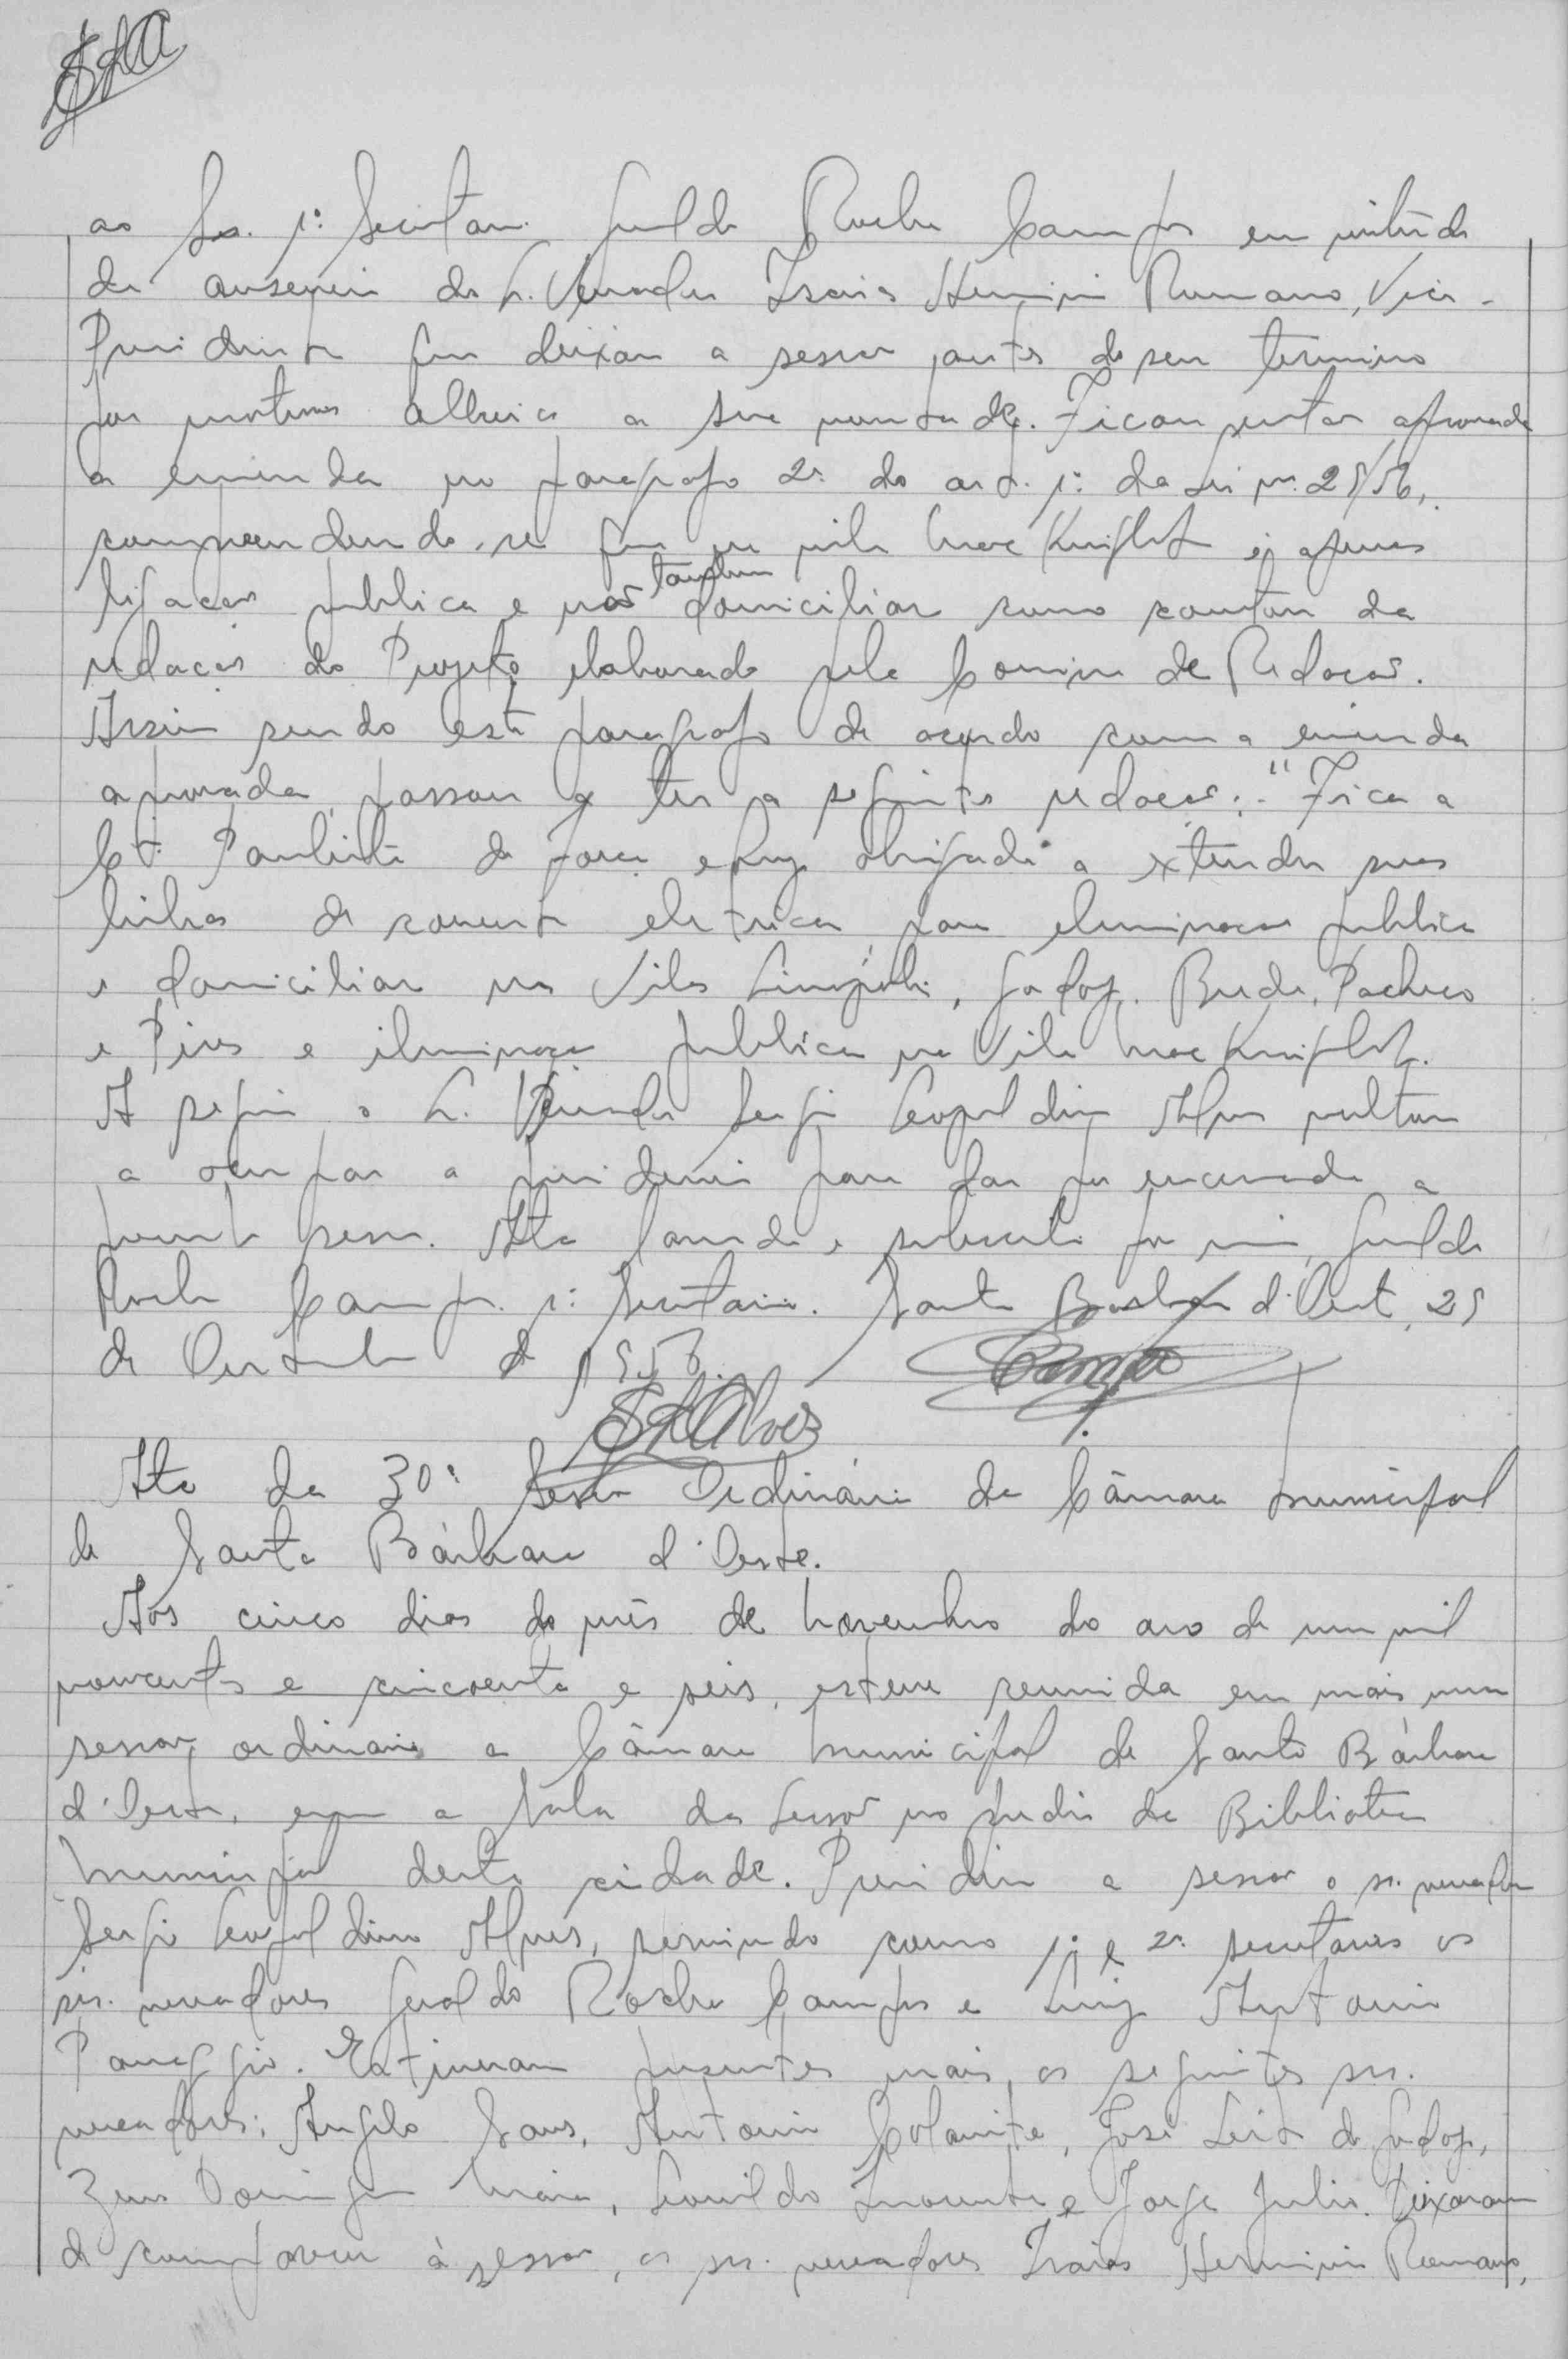 SLA
ao Sr. 1º Secretario Geraldo Rocha Campos em virtude
da ausencia do Sr. Vereador Isaias Herminio Romano, Vice-
Presidente por deixar a sessão antes do seu termino
por motivos alheios a sua vontade. Ficou aprovada
a emenda no paragrafo 2º do art. 1º da Lei nº 25/56,
compreendendo-se que na vila Mac Knight é apenas
ligação publica e não tambem domiciliar como constou da
redação do Projeto elaborado pela Comissão de Redação.
Assim sendo este paragrafo de acordo com a emenda
aprovada, passou a ter a seguinte redação:- "Fica a
Cia. Paulista de Força e Luz obrigada a extender suas
linhas de corrente eletrica para eluminação publica
e domiciliar nas Vilas Linópolis, Godoy, Breda, Pacheco
e Pires e iluminação publica na Vila Mac Knight.
A seguir o Sr. Vereador Sergio Leopoldino Alves voltou
a ocupar a presidencia para dar por encerrada a
presente sessão. Ata lavrada e subscrita por mim, Geraldo
Rocha Campos, 1º Secretario. Santa Barbara d'Oeste, 25
de Outubro de 1956.
Campos
SLAlves
Ata da 30ª Sessão Ordinária da Câmara Municipal
de Santa Bárbara d'Oeste.
Aos cinco dias do mês de Novembro do ano de um mil
novecentos e cincoenta e seis, esteve reunida em mais uma
sessão ordinaria a Câmara Municipal de Santa Bárbara
d'Oeste, em a Sala da Sessão no predio da Biblioteca
Municipal desta cidade. Presidiu a sessão o sr. vereador
Sergio Leopoldino Alves, servindo como 1º e 2º secretarios os
srs. vereadores Geraldo Rocha Campos e Luiz Antonio
Panaggio. Estiveram presentes mais, os seguintes srs.
vereadores: Angelo Sans, Antonio Colamite, José Leite de Godoy,
Zeno Domingos Maia, Leonildo Inocente e Jorge Julio. Deixaram
de comparecer à sessão, os srs. vereadores Isaias Herminio Romano,